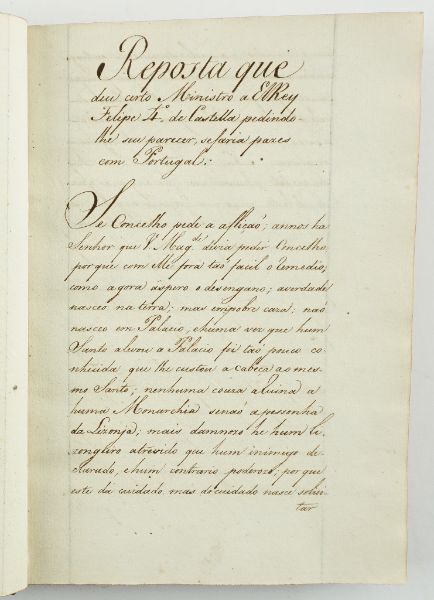 Reposta que
deu certo Ministro a ElRey
Felipe 4.º de Castella pedindo-
lhe seu parecer, se faria pazes
com Portugal.
Se Concelho pede a aflição; annos ha
Senhor que V. Mag.de devia pedir Concelho
porque com elle fora tão facil o remedio,
como agora aspero o desengano; averdade
nasceo na terra; mas empobre caza; naõ
nasceo em Palacio, e huma vez que hum
Santo alevou a Palacio foi tão pouco co-
nhicida que lhe custou a cabeça ao mes-
mo Santo; nenhuma couza aruina a
huma Monarchia senaõ apessonha
da Lizonja; mais damnozo he hum li-
zongeiro atrevido que hum inimigo de-
clarado, e hum contrario poderozo; porque
este da cuidado, mas do cuidado nasce solici-
tar